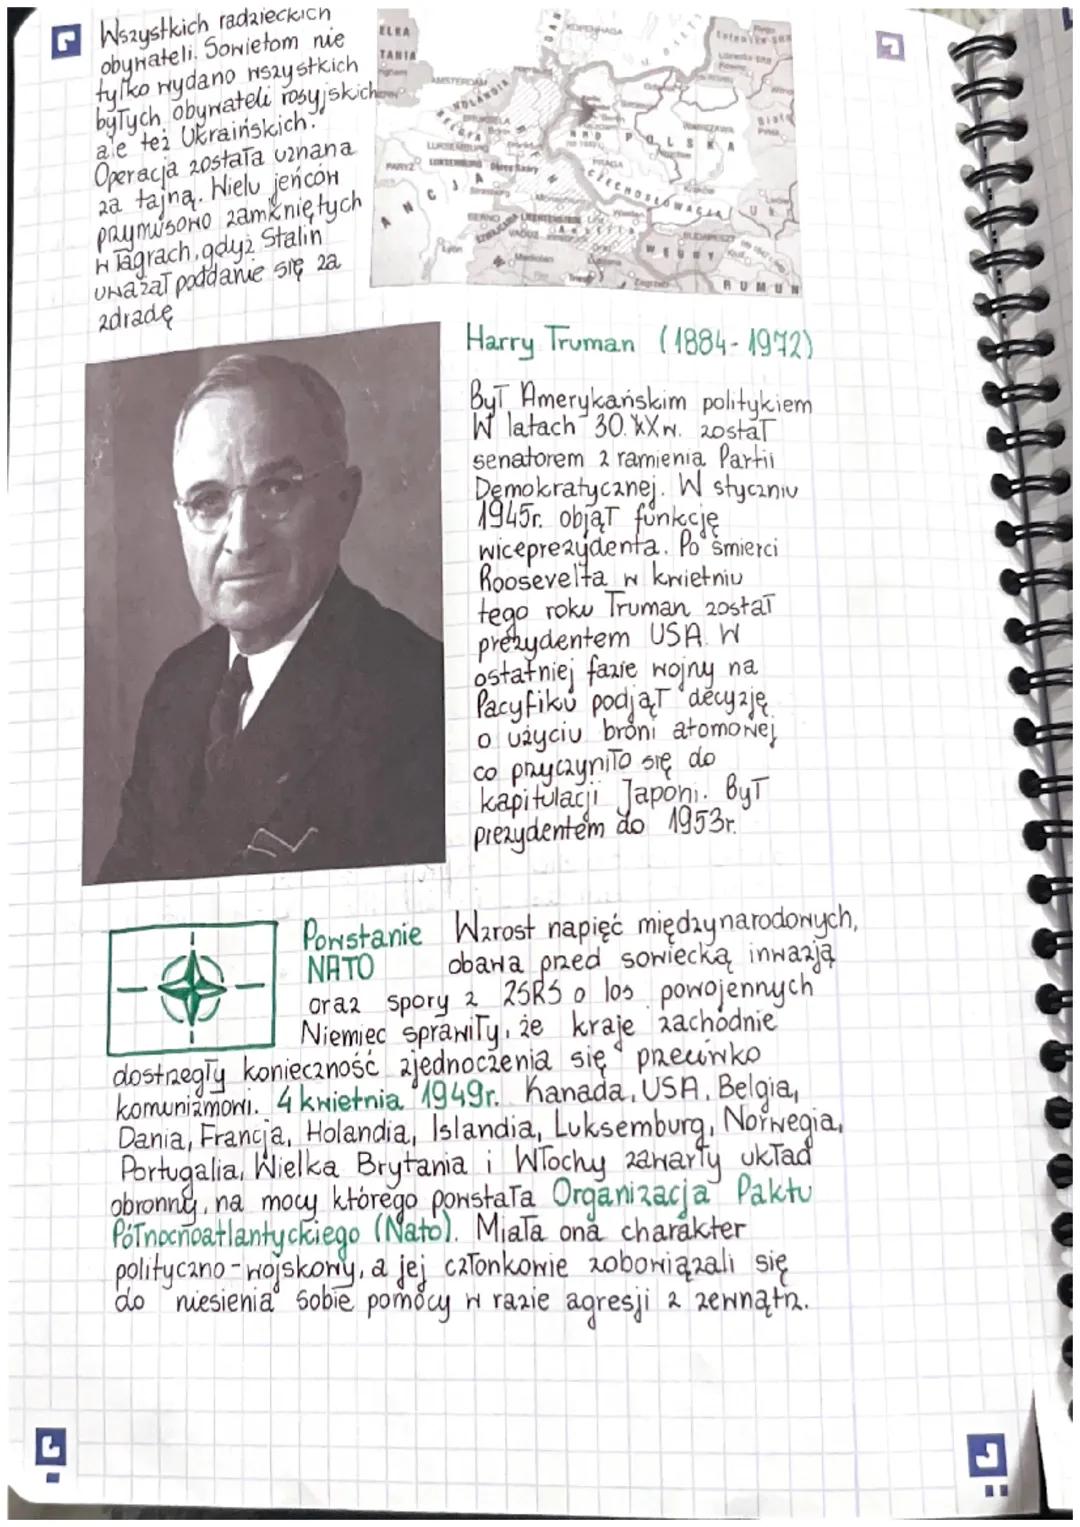 Wszystkich radzieckich
obywateli. Sowietom nie
tylko wydano wszystkich
byłych obywateli rosyjskich
ale też Ukraińskich.
Operacja została uznana
za tajną. Wielu jeńców
przymusowo zamkniętych
w łagrach, gdyż Stalin
uważał poddanie się za
zdradę
ELKA
TANIA
KOPENHAGA
AMSTERDAM
HOLANDIA
BRUKSELA
BELGIA
LUKSEMBURG
PARYŻ
NRD
POLSKA
WARSZAWA
PRAGA
CZECHOSŁOWACJA
Kraków
ANCJA
BERNO
VADUZ
Wiedeń
Austria
BUDAPESZT
WĘGRY
Lyon
Mediolan
Zagrzeb
RUMUN
Harry Truman (1884-1972)
Był Amerykańskim politykiem
W latach 30. XXw. został
senatorem z ramienia Partii
Demokratycznej. W styczniu
1945r. objął funkcję
wiceprezydenta. Po śmierci
Roosevelta w kwietniu
tego roku Truman został
prezydentem USA. W
ostatniej fazie wojny na
Pacyfiku podjął decyzję
o użyciu broni atomowej
co przyczyniło się do
kapitulacji Japoni. Był
prezydentem do 1953r.
Powstanie NATO
Wzrost napięć międzynarodowych,
obawa przed sowiecką inwazją
oraz spory z ZSRS o los powojennych
Niemiec sprawiły, że kraje zachodnie
dostrzegły konieczność zjednoczenia się przeciwko
komunizmowi. 4 kwietnia 1949r. Kanada, USA, Belgia,
Dania, Francja, Holandia, Islandia, Luksemburg, Norwegia,
Portugalia, Wielka Brytania i Włochy zawarły układ
obronny, na mocy którego powstała Organizacja Paktu
Północnoatlantyckiego (Nato). Miała ona charakter
polityczno-wojskowy, a jej członkowie zobowiązali się
do niesienia sobie pomocy w razie agresji z zewnątrz.